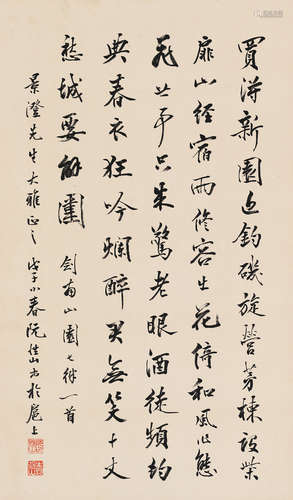 買得新園近釣磯旋營茅棟設柴
扉山經宿雨修容出花倚和風作態
飛世事只來驚老眼酒徒頻約
典春衣狂吟爛醉君無笑十丈
愁城要解圍 劍南山園七律一首
景澄先生大雅正之 戊子小春阮性山書於滬上